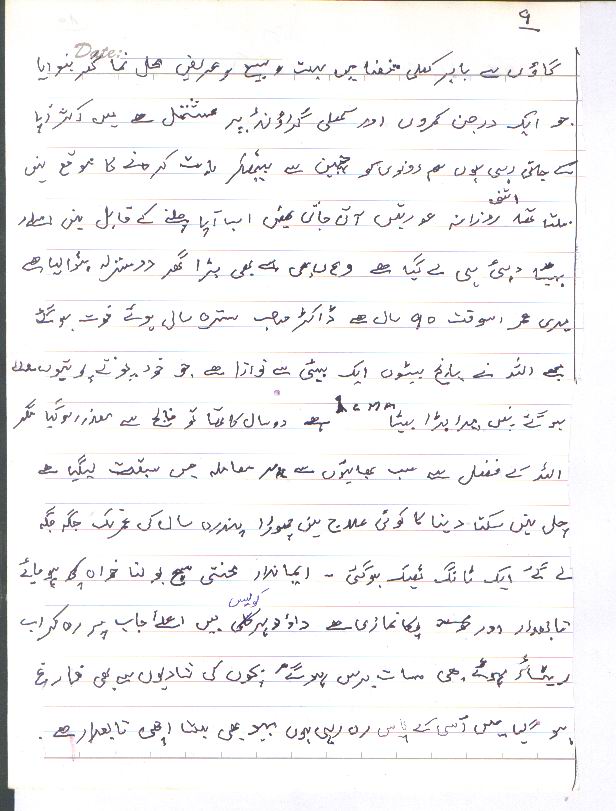 ۹
Date:
گاؤں سے باہر کھلی فضا میں بہت وسیع و عریض محل نما گھر بنوایا
جو ایک درجن کمروں اور کھلی گراؤنڈ پر مشتمل ہے میں اکثر آپا
کے جاتی رہتی ہوں ہم دونوں کو چین سے بیٹھکر بات کرنے کا موقع نہیں
ملتا تھا روزانہ اتنی عورتیں آتی جاتی تھیں اب آپا چلنے کے قابل نہیں
بیٹا ڈپئی سی لے گیا ہے وہاں بھی بڑا گھر دو منزلہ بنوالیا ہے
میری عمر اسوقت ۹۵ سال ہے ڈاکٹر صاحب سترہ سال ہوئے فوت ہو گئے
مجھے اللہ نے پانچ بیٹوں ایک بیٹی سے نوازا ہے جو خود پوتے پوتیوں والے
ہو گئے ہیں میرا بڑا بیٹا ہے دو سال کا تھا تو فالج سے معذور ہو گیا مگر
اللہ کے فضل سے سب بھائیوں سے ہر معاملہ میں سبقت لیگیا ہے
چل نہیں سکتا دنیا کا کوئی علاج نہیں چھوڑا پندرہ سال کی عمر تک جگہ جگہ
لے گئے ایک ٹانگ ٹھیک ہو گئی ۔ ایماندار محنتی سچ بولنا خواہ کچھ ہو جائے
تابعدار اور پکا نمازی ہے داؤد ہرکولیس میں اعلےٰ جاب پر رہ کر اب
ریٹائر ہوئے بھی سات برس ہو گئے بچوں کی شادیوں سے بھی فارغ
ہو گیا میں اسی کے پاس رہ رہی ہوں بہو بھی بہت اچھی تابعدار ہے ۔